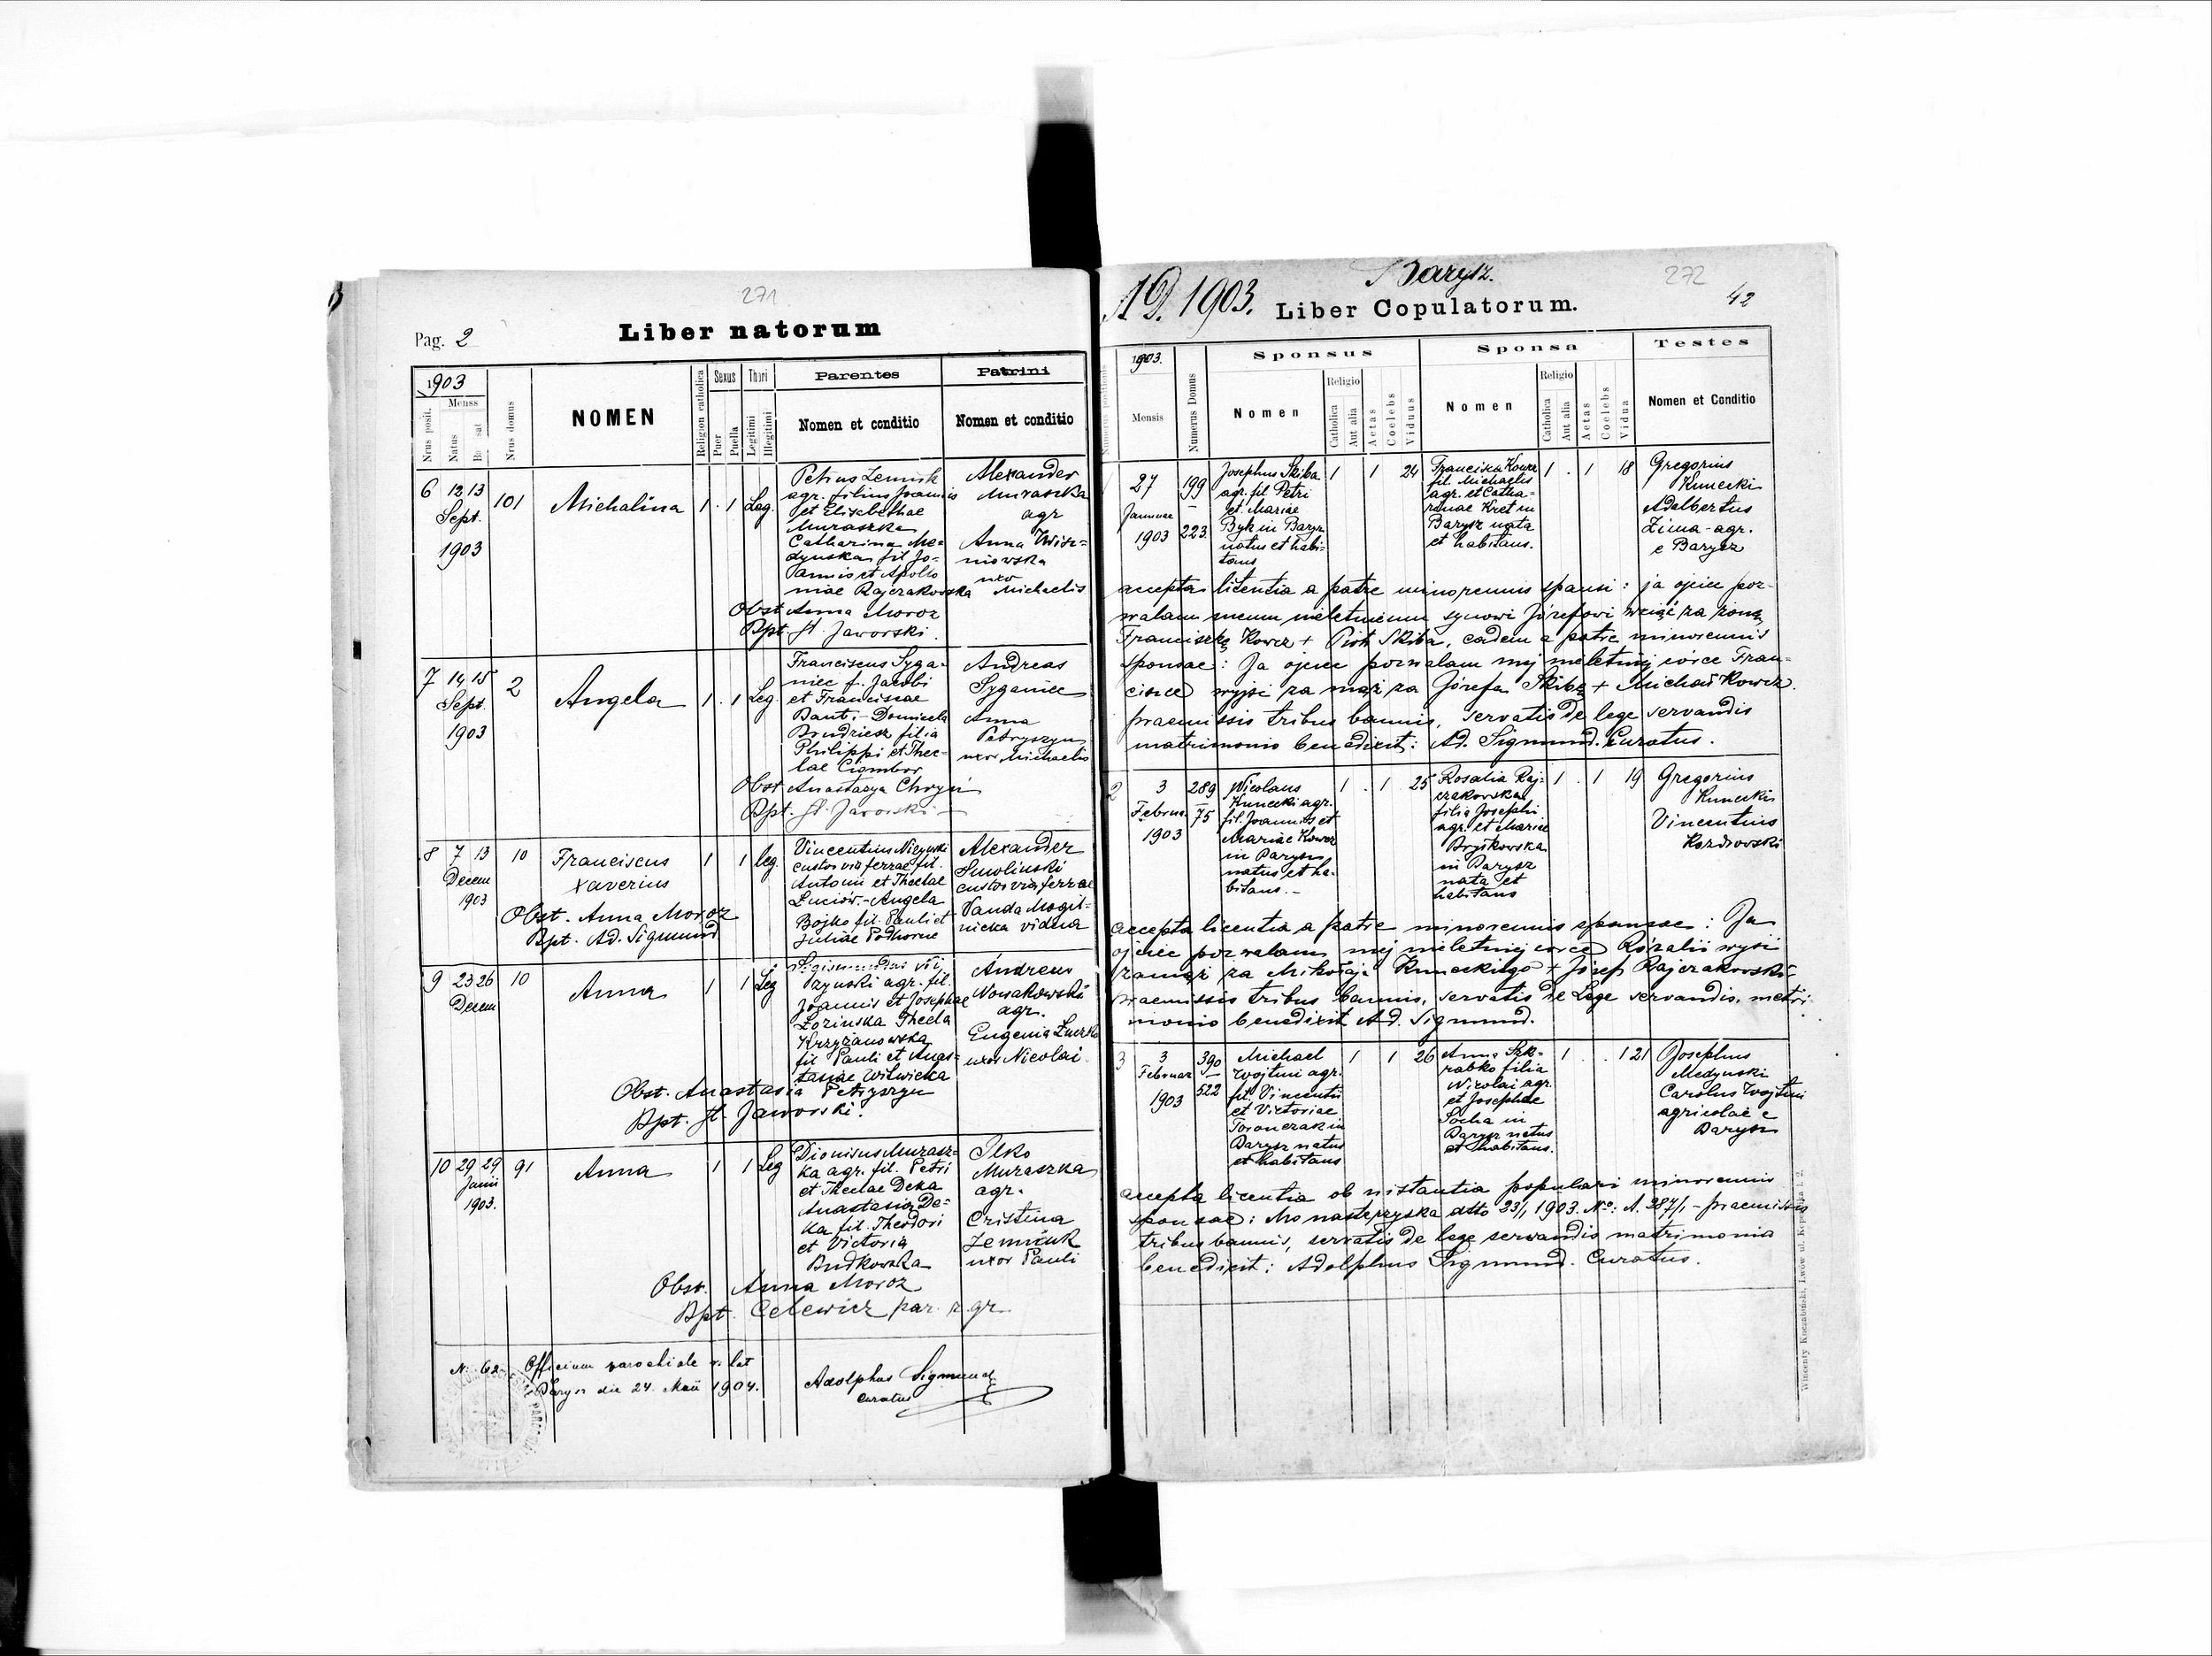 271
Pag. 2
Liber natorum
1903
Nrus posit.
Menss
Natus
Nrus domus
NOMEN
Religion catholica
Sexus
Puer
Puella
Thori
Legitimi
Illegitimi
Parentes
Nomen et conditio
Patrini
Nomen et conditio
6 12 13 101 Michalina 1 . 1 Leg.
Sept.
1903
Petrus Lemnik
agr. filius Joannis
et Elisabethae
Muraszka
Catharina Me-
dynska fil Jo-
annis et Apollo
niae Rajczakowska
Alexander
Muraszka
agr
Anna Wisz-
niowska
uxo
Michaelis
Obst Anna Moroz
Bpt. St. Jaworski.
7 14 15 2 Angela 1 . 1 Leg.
Sept.
1903
Franciscus Syga-
niec f. Jacobi
et Franciscae
Bant. - Domicela
Brudziesz filia
Philippi et Thec-
lae Cymbor
Andreas
Syganiec
Anna
Petryszyn
uxor Michaelis
Obst Anastazya Chryń
Bpt. St. Jaworski
8 7 13 10 Franciscus 1 1 leg.
Decem
1903
Xaverius
Obst. Anna Moroz
Bpt. Ad. Sigmund
Vincentius
custos viae ferrae fil.
Antonii et Theclae
Luciów. - Angela
Bojko fil. Pauli et
Juliae Podhorne
Alexander
Smolinski
custos viae ferrae
Vanda Mogil-
nicka vidua
9 23 26 10 Anna 1 1 Leg
Decem
Sigismundus
agr. fil.
Joannis et Josephae
Łozinska Thecla
Krzyzanowska
fil Pauli et Anas-
tasiae Wilwicka
Andreas
Nowakowski
agr.
Eugenia
uxor Nicolai
Obst. Anastasia Petryszyn
Bpt. St. Jaworski.
10 29 29 91 Anna 1 1 Leg
Junii
1903.
Dionisus Murasz-
ka agr. fil. Petri
et Theclae Deka
Anastasia De-
ka fil. Theodori
et Victoria
Budkowska
Ilko
Muraszka
agr.
Cristina
Zemniuk
uxor Pauli
Obst. Anna Moroz
Bpt. Celewicz par. r. gr.
N. 62. Officium parochiale r. lat
Barysz die 24. Maii 1904.
Adolphus Sigmund
Curatus
AD. 1903.
Barysz.
272
Liber Copulatorum.
42
1903.
Mensis
Numerus Domus
Sponsus
Nomen
Religio
Catholica
Aut alia
Aetas
Coelebs
Viduus
Sponsa
Nomen
Religio
Catholica
Aut alia
Aetas
Coelebs
Vidua
Testes
Nomen et Conditio
27
Januar
1903
199
223
Josephus Skiba
agr. fil Petri
et Mariae
Byk in Barysz
natus et habi-
tans
1 1 24
Franciska Kowcz
fil. Michaelis
agr. et Catha-
rinae Kret in
Barysz nata
et habitans.
1 . 1 18
Gregorius
Kunecki
Adalbertus
Zima - agr.
e Barysz
accepta licentia a patre minorennis sponsi: ja ojciec poz-
walam memu nieletniemu synowi Józefowi wziąć za żonę
Franciszkę Kowcz + Piotr Skiba, eadem a patre minorennis
sponsae: Ja ojciec pozwalam mej nieletniej córce Fran-
cisce wyjść za mąż za Józefa Skibę + Michał Kowcz.
praemissis tribus bannis, servatis de lege servandis
matrimonio benedixit: Ad. Sigmund. Curatus.
2 3
Februar
1903
289
75
Nicolaus
Kunecki agr.
fil. Joannis et
Mariae Kowcz
in Barysz
natus et ha-
bitans. -
1 . 1 25
Rosalia Raj-
czakowska
filia Josephi
agr. et Mariae
Bryskowska
in Barysz
nata et
habitans
1 . 1 19
Gregorius
Kunecki
Vincentius
Kozdrowski
accepta licentia a patre minorennis sponsae: Ja
ojciec pozwalam mej nieletniej córce Rozalii wyjść
zamąż za Mikołaja Kuneckiego + Józef Rajczakowski
praemissis tribus bannis, servatis de Lege servandis, matri-
monio benedixit Ad. Sigmund.
3 3
Februar
1903
390
522
Michael
Wojtuń agr.
fil. Vincentii
et Victoriae
Toronczak in
Barysz natus
et habitans
1 1 26
Anna Szk-
rabko filia
Nicolai agr.
et Josephae
Socha in
Barysz natus
et habitans.
1 . . 1 21
Josephus
Medynski
Carolus Wojtuń
agricolae e
Barysz
accepta licentia ob nistantia populari minorennis
sponsae: Monasterzyska dtto 23/1 1903. No: A. 387/1 - praemissis
tribus bannis, servatis de lege servandis matrimonia
benedixit: Adolphus Sigmund. Curatus.